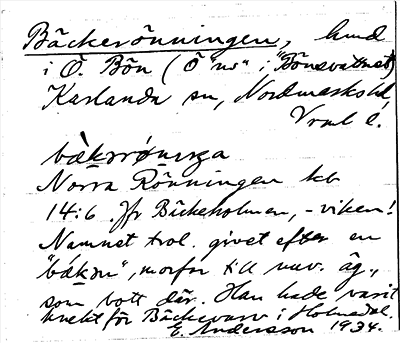 Bäckerönningen, hmd
i Ö. Bön (Ö "nv" i "Bönsvattnet)
Karlanda sn, Nordmarks hd
Vrml l.
bäkrrønıŋa
Norra Rönningen kb
14:6. Jfr Bäckeholmen, -viken!
Namnet trol. givet efter en
"bäkɷn", morfar till nuv. äg.,
som bott där. Han hade varit
knekt för Bäckevarv i Holmedal.
E. Andersson 1934.